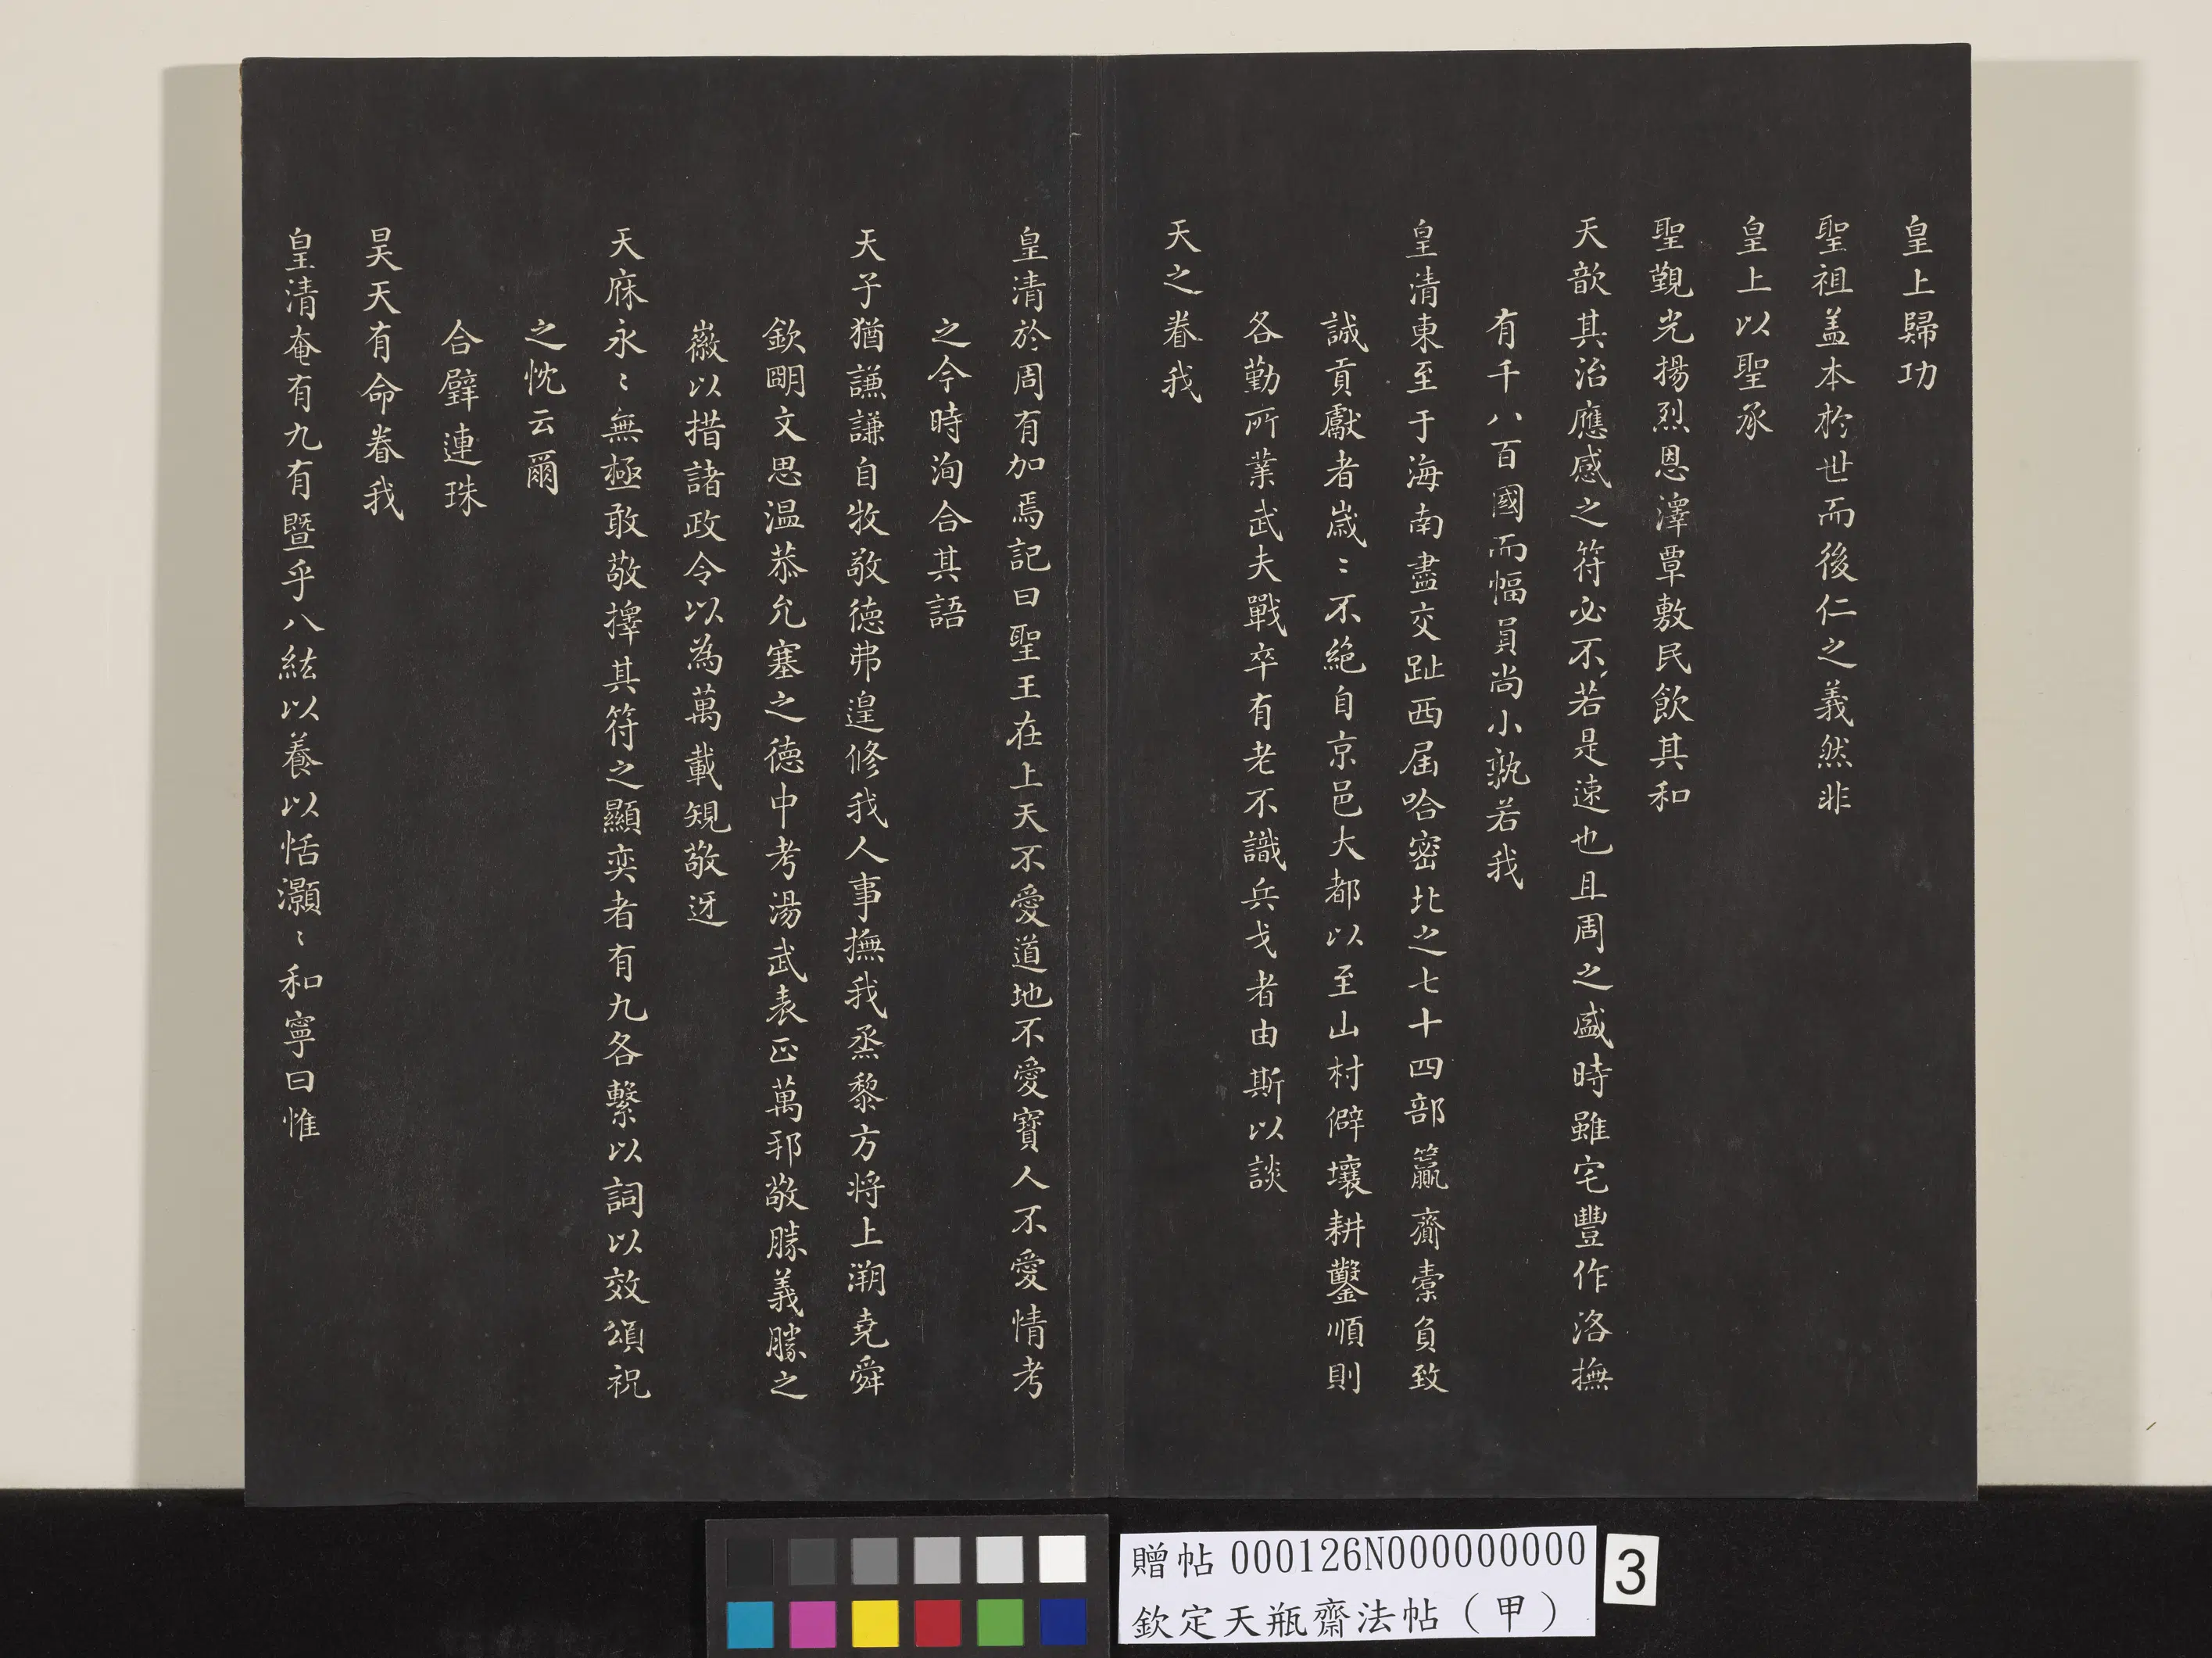 皇上歸功
聖祖盖本於世而後仁之義然非
皇上以聖承
聖覲光揚烈恩澤覃敷民飲其和
天歆其治應感之符必不若是速也且周之盛時雖宅豐作洛撫
有千八百國而幅員尚小孰若我
皇清東至于海南盡交趾西届哈密北之七十四部籯齎橐負致
誠貢獻者歲〻不絕自京邑大都以至山村僻壤耕鑿順則
各勤所業武夫戰卒有老不識兵戈者由斯以談
天之眷我
皇清於周有加焉記曰聖王在上天不愛道地不愛寶人不愛情考
之今時洵合其語
天子猶謙謙自牧敬德弗遑修我人事撫我烝黎方将上溯堯舜
欽明文思温恭允塞之德中考湯武表正萬邦敬勝義勝之
徽以措諸政令以為萬載規敬迓
天庥永〻無極敢敬擇其符之顯奕者有九各繫以詞以效頌祝
之忱云爾
合璧連珠
昊天有命眷我
皇清奄有九有暨乎八紘以養以恬灝〻和寧曰惟
贈帖 000126N000000000
欽定天瓶齋法帖（甲）
3